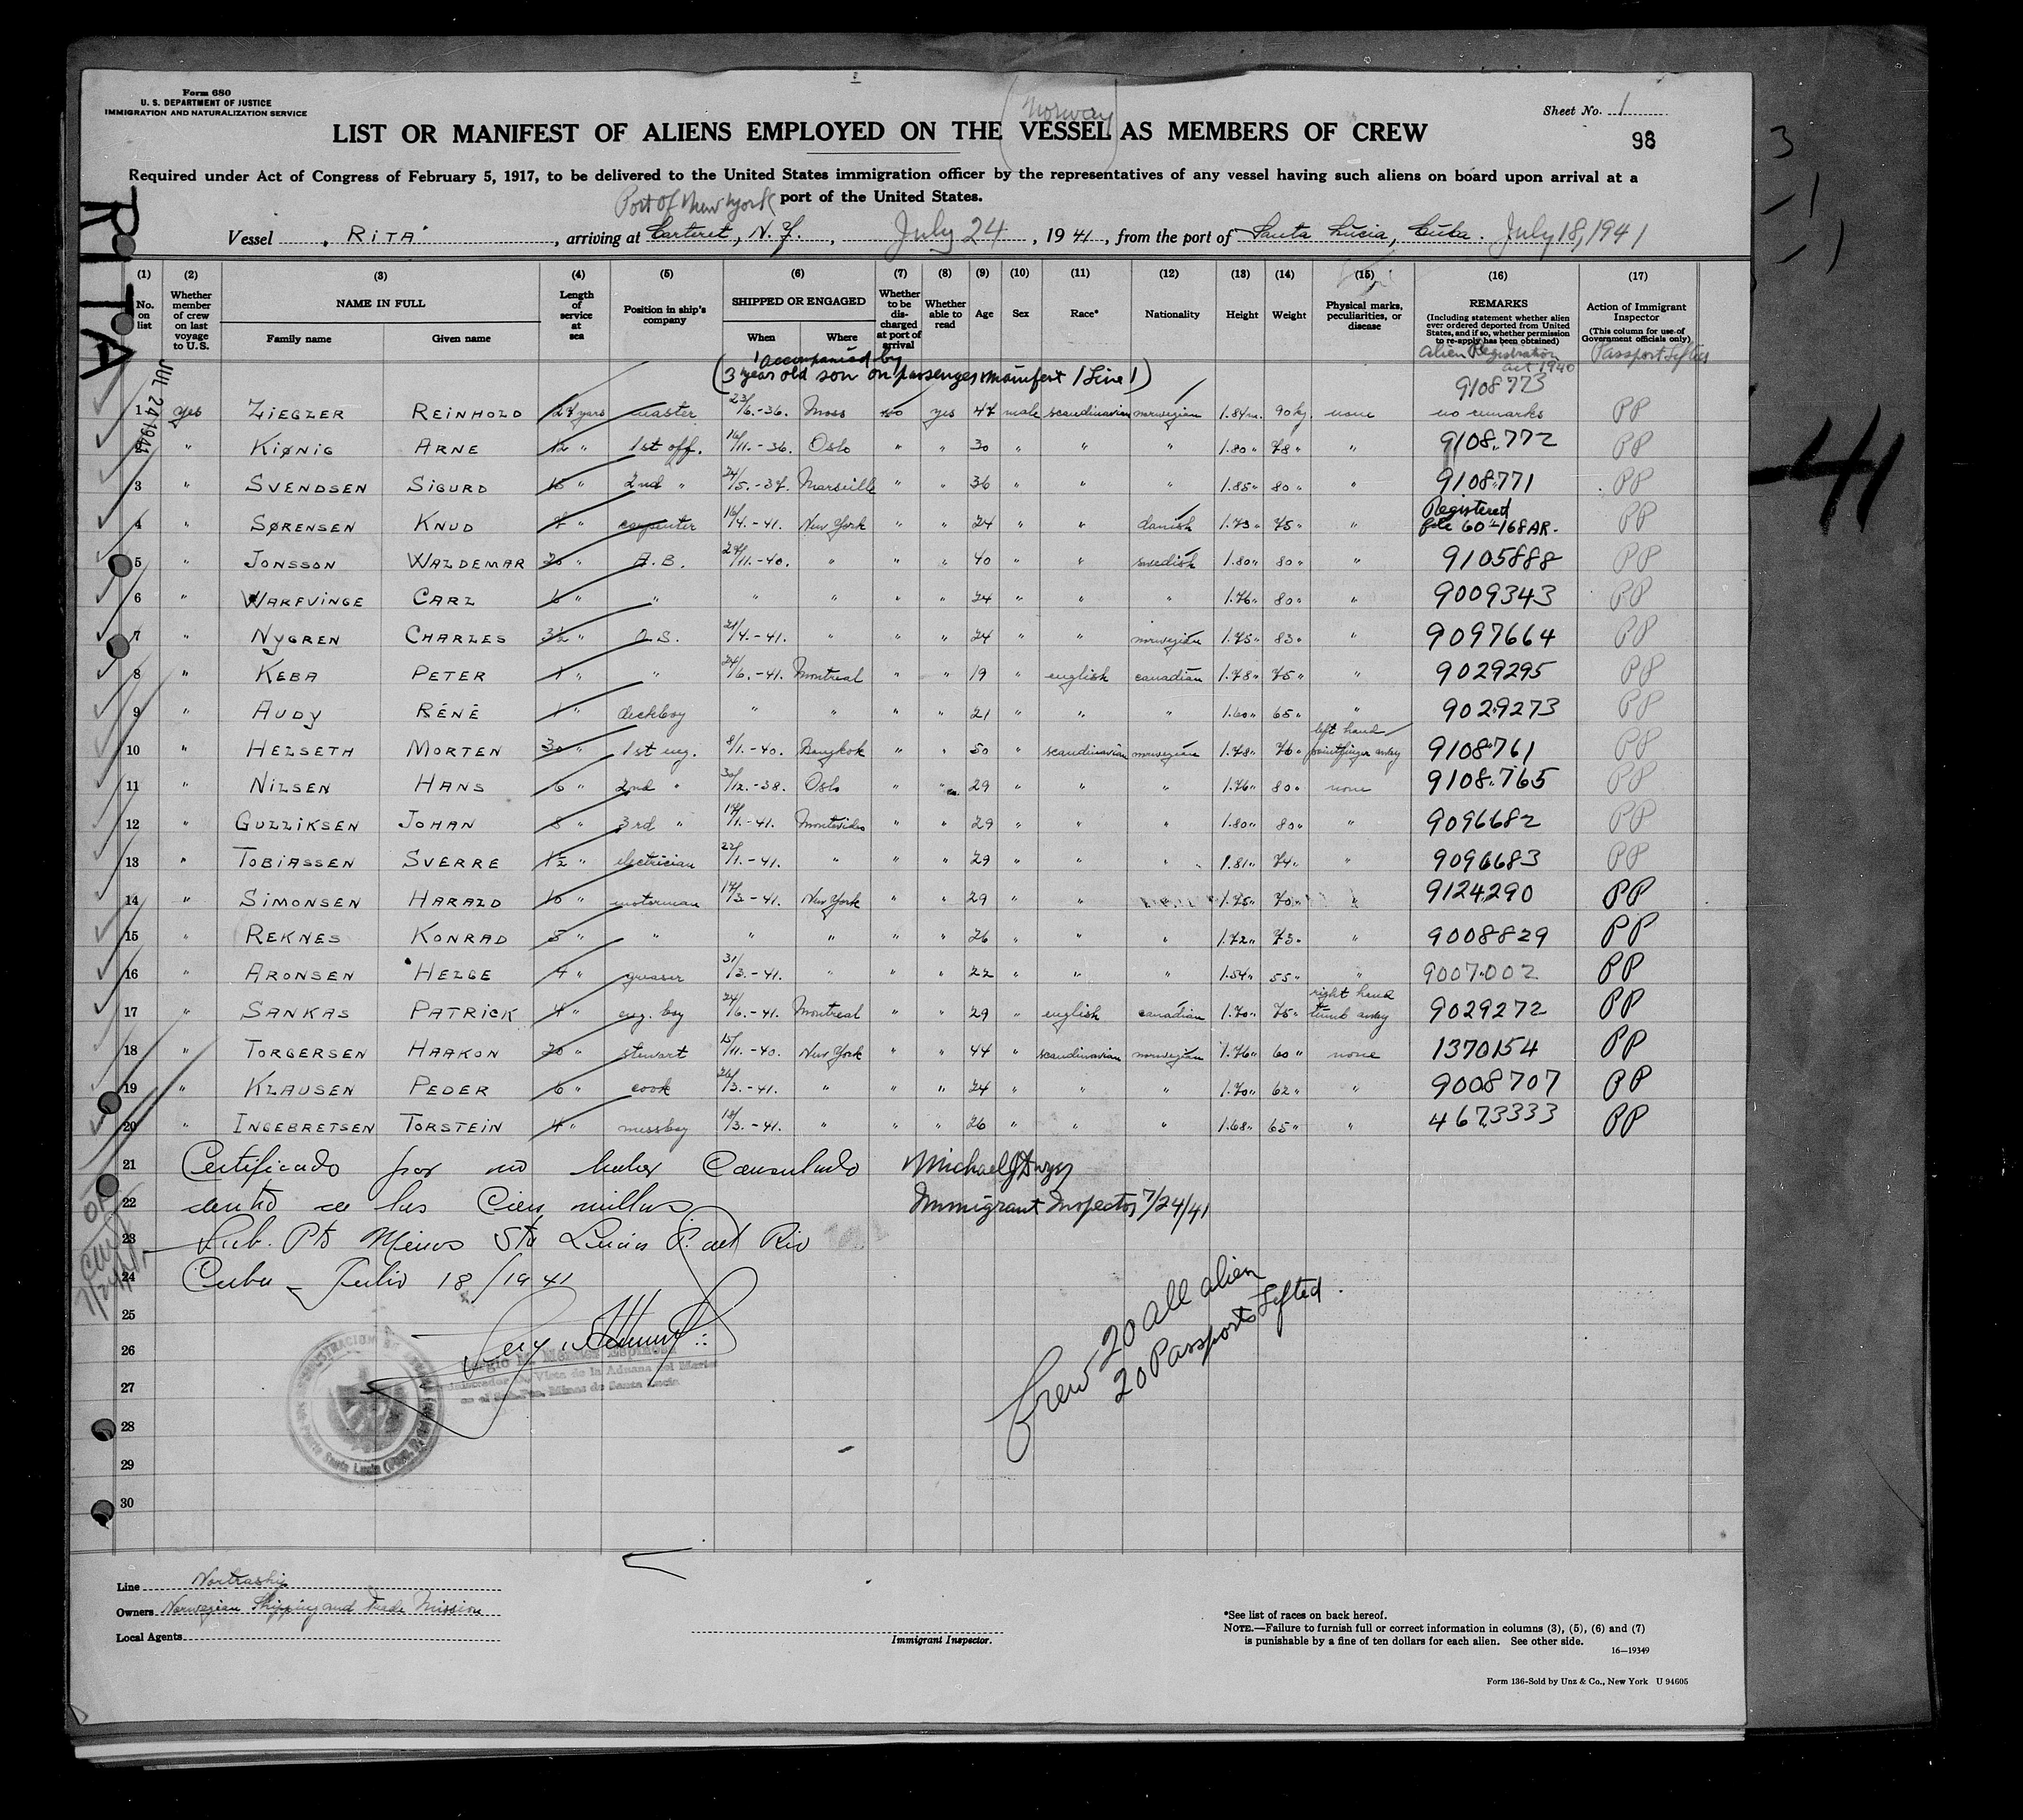 Form 680
U. S. DEPARTMENT OF JUSTICE
IMMIGRATION AND NATURALIZATION SERVICE
(Norway)
Sheet No. 1
LIST OR MANIFEST OF ALIENS EMPLOYED ON THE VESSEL AS MEMBERS OF CREW
98
Required under Act of Congress of February 5, 1917, to be delivered to the United States immigration officer by the representatives of any vessel having such aliens on board upon arrival at a
Port of New York port of the United States.
Vessel "RITA", arriving at Carteret, N.J., July 24, 1941, from the port of Santa Lucia, Cuba. July 18, 1941
RITA
JUL 24 1941
-41
(1) (2) (3) (4) (5) (6) (7) (8) (9) (10) (11) (12) (13) (14) (15) (16) (17)
No. on list
Whether member of crew on last voyage to U.S.
NAME IN FULL
Family name Given name
Length of service at sea
Position in ship's company
SHIPPED OR ENGAGED
When Where
Whether to be discharged at port of arrival
Whether able to read
Age
Sex
Race*
Nationality
Height
Weight
Physical marks, peculiarities, or disease
REMARKS
(Including statement whether alien ever ordered deported from United States, and if so, whether permission to re-apply has been obtained)
Action of Immigrant Inspector
(This column for use of Government officials only)
Alien Registration act 1940
Passport Lifted
(accompanied by
3 year old son on passenger manifest / Line 1)
9108773
1 yes ZIEGLER REINHOLD 27 years master 23/6.-36. Moss no yes 47 male scandinavian norwegian 1.84m. 90 kg. none no remarks PP
2 " KIØNIG ARNE 12 " 1st off. 16/11.-36. Oslo " " 30 " " " 1.80 " 78 " " 9108772 PP
3 " SVENDSEN SIGURD 15 " 2nd " 24/5.-37. Marseille " " 36 " " " 1.85 " 80 " " 9108771 PP
4 " SØRENSEN KNUD 7 " carpenter 16/4.-41. New York " " 24 " " danish 1.73 " 75 " " Registered file 60-168AR. PP
5 " JONSSON WALDEMAR 20 " A.B. 27/11.-40. " " " 40 " " swedish 1.80 " 80 " " 9105888 PP
6 " WARFVINGE CARL 6 " " " " " " 24 " " " 1.76 " 80 " " 9009343 PP
7 " NYGREN CHARLES 3½ " O.S. 21/4.-41. " " " 24 " " norwegian 1.75 " 83 " " 9097664 PP
8 " KEBA PETER 1 " " 24/6.-41. Montreal " " 19 " english canadian 1.78 " 75 " " 9029295 PP
9 " AUDY RÉNÉ 1 " deckboy " " " " 21 " " " 1.60 " 65 " " 9029273 PP
10 " HELSETH MORTEN 30 " 1st eng. 8/1.-40. Bangkok " " 50 " scandinavian norwegian 1.78 " 76 " left hand pointfinger away 9108761 PP
11 " NILSEN HANS 6 " 2nd " 30/12.-38. Oslo " " 29 " " " 1.76 " 80 " none 9108765 PP
12 " GULLIKSEN JOHAN 8 " 3rd " 19/1.-41. Montevideo " " 29 " " " 1.80 " 80 " " 9096682 PP
13 " TOBIASSEN SVERRE 1½ " electrician 22/1.-41. " " " 29 " " " 1.81 " 74 " " 9096683 PP
14 " SIMONSEN HARALD 10 " motorman 14/3.-41. New York " " 29 " " 1.75 " 70 " " 9124290 PP
15 " REKNES KONRAD 8 " " " " " " 26 " " " 1.72 " 73 " " 9008829 PP
16 " ARONSEN HELGE 4 " greaser 31/3.-41. " " " 22 " " " 1.54 " 55 " " 9007002 PP
17 " SANKAS PATRICK 4 " eng. boy 24/6.-41. Montreal " " 29 " english canadian 1.70 " 75 " right hand tumb away 9029272 PP
18 " TORGERSEN HAAKON 20 " stewart 15/11.-40. New York " " 44 " scandinavian norwegian 1.76 " 60 " none 1370154 PP
19 " KLAUSEN PEDER 6 " cook 26/3.-41. " " " 24 " " " 1.70 " 62 " " 9008707 PP
20 " INGEBRETSEN TORSTEIN 4 " messboy 18/3.-41. " " " 26 " " " 1.68 " 65 " " 4673333 PP
21 Certificado por no haber Consulado
22 dentro de las Cien millas
23 Sub. Pto Minas Sta Lucia P. del Rio
24 Cuba - Julio 18/1941
Immigrant Inspector 7/24/41
25
26
27
28
29
30
Crew 20 all alien
20 Passports Lifted.
Line Nortraship
Owners Norwegian Shipping and Trade Mission
Local Agents
Immigrant Inspector.
*See list of races on back hereof.
NOTE.—Failure to furnish full or correct information in columns (3), (5), (6) and (7)
is punishable by a fine of ten dollars for each alien. See other side.
16—19349
Form 136-Sold by Unz & Co., New York U 94605